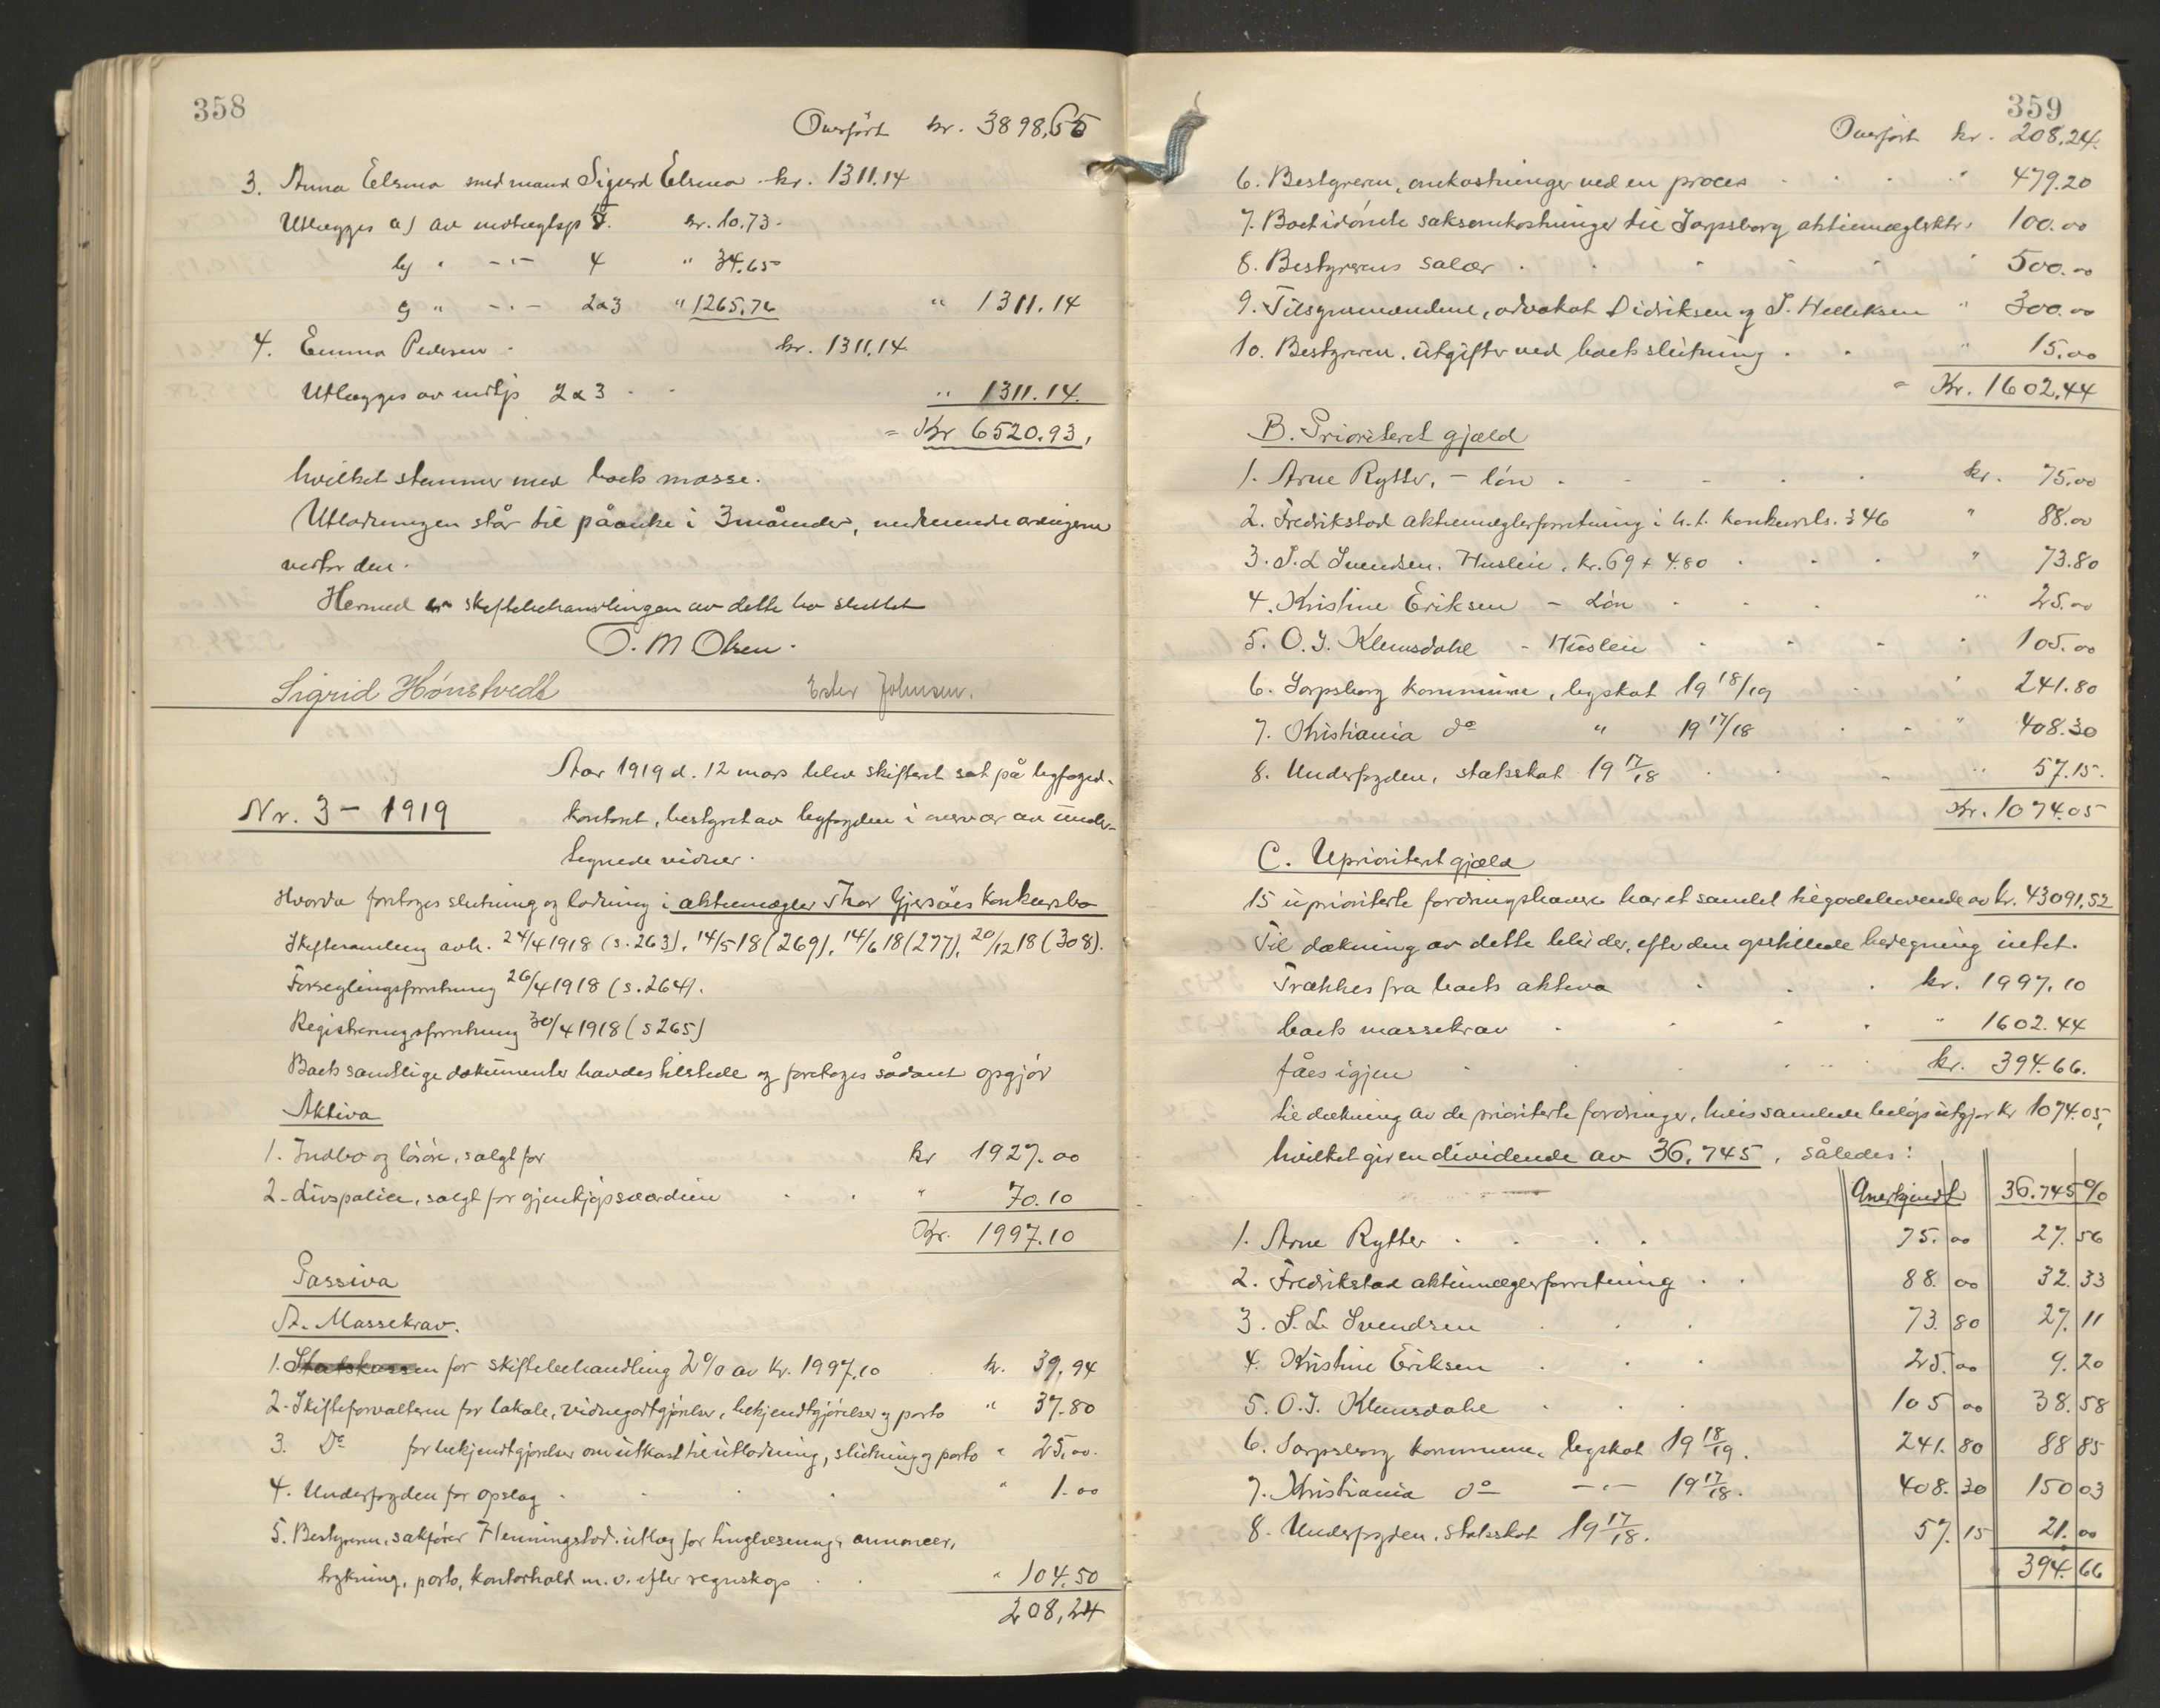 358
Overført kr. 3898,65
3. Anna Elsmo med mand Sigurd Elsmo kr. 1311.14
Utlægges a) av indtægtsp 5. kr. 10.73
b) " -"- 4 " 34.65
c) " -"- 2 & 3 " 1265.76 " 1311.14
4. Emma Pedersen kr. 1311.14
Utlægges av indtp 2 & 3 " 1311.14
= Kr 6520.93,
hvilket stemmer med boets masse.
Utlodningen står til påanke i 3 måneder,
Hermed er skiftebehandlingen av dette bo sluttet
O. M Olsen.
Sigrid Hønstvedt Ester Johnsen.
Aar 1919 d. 12 mars blev skifteret sat på byfoged-
Nr. 3 - 1919 kontoret, bestyret av byfogden i overvær av under-
tegnede vidner.
Hvorda foretoges slutning og lodning i aktiemægler Thor Gjersøes konkursbo
Skiftesamling avh. 24/4 1918 (s. 263), 14/5 18 (269), 14/6 18 (277), 20/12 18 (308).
Forseglingsforretning 26/4 1918 (s. 264).
Registreringsforretning 30/4 1918 (s 265)
Boets samtlige dokumenter havdes tilstede og foretoges sådant opgjør
Aktiva
1. Indbo og løsøre, solgt for kr 1927.00
2. Livspolice, solgt for gjenkjøpsværdien " 70.10
Kr. 1997.10
Passiva
A. Massekrav.
1. Statskassen for skiftebehandling 2% av kr. 1997.10 kr. 39.94
2. Skifteforvalteren for lokale, vidnegodtgjørelse, bekjendtgjørelser og porto " 37.80
3. Do for bekjendtgjørelser om utkast til utlodning, slutning og porto " 25.00
4. Underfogden for opslag " 1.00
5. Bestyreren, sakfører Henningstad. utlæg for tinglæsning, annoncer,
trykning, porto, kontorhold m. v. efter regnskap " 104.50
208,24
359
Overført kr. 208.24.
6. Bestyreren, omkostninger ved en proces " 479.20
7. Boet idømte saksomkostninger til Sarpsborg aktiemæglerktr. 100.00
8. Bestyrerens salær " 500.00
9. Tilsynsmændene, advokat Didriksen og S. Helleksen " 300.00
10. Bestyreren. utgifter ved boets slutning " 15.00
= Kr. 1602.44
B. Prioritert gjæld
1. Arne Rytter, - løn kr. 75.00
2. Fredrikstad aktiemæglerforretning i h. t. konkursls. § 46 " 88.00
3. S. L Svendsen. Husleie, kr. 69 + 4.80 " 73.80
4. Kristine Eriksen - Løn " 25.00
5. O. J. Klemsdahl - Husleie " 105.00
6. Sarpsborg kommune, byskat 19 18/19 " 241.80
7. Kristiania do " 19 17/18 " 408.30
8. Underfogden, statsskat 19 17/18 " 57.15.
Kr. 1074.05
C. Uprioritert gjæld
15 uprioriterte fordringshavere har et samlet tilgodehavende av kr. 43091,52
Til dækning av dette blir der, efter den opstillede beregning intet.
Trækkes fra boets aktiva kr. 1997.10
boets massekrav " 1602.44
fåes igjen kr. 394.66.
til dækning av de prioriterte fordringer, hvis samlede beløp utgjør kr 1074.05,
hvilket gir en dividende av 36,745, således:
Anerkjendt 36.745%
1. Arne Rytter 75.00 27.56
2. Fredrikstad aktiemæglerforretning 88.00 32.33
3. S. L. Svendsen 73.80 27.11
4. Kristine Eriksen 25.00 9.20
5. O. J. Klemsdahl 105 00 38.58
6. Sarpsborg kommune, byskat 19 18/19. 241.80 88 85
7. Kristiania do -"- 19 17/18. 408.30 150 03
8. Underfogden. Statsskat 19 17/18. 57.15 21.00
394.66